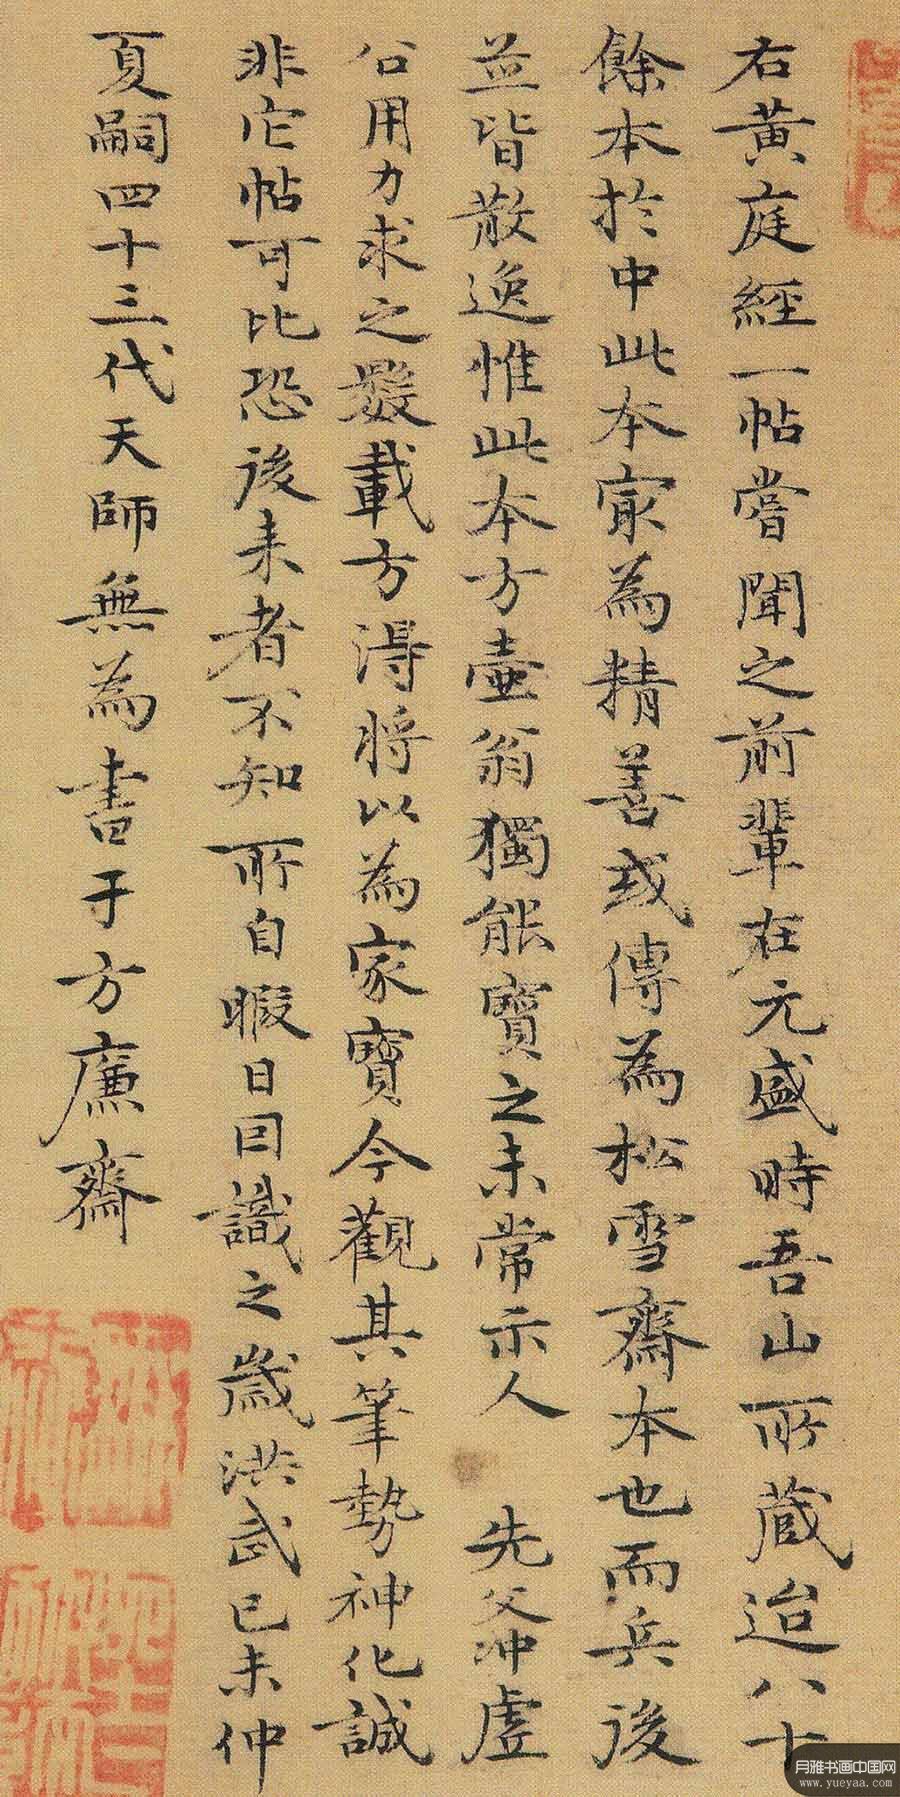 右黄庭經一帖嘗聞之前輩在元盛時吾山所蔵迨八十
餘本於中此本㝡為精善或傳為松雪齋本也而兵後
並皆散逸惟此本方壷翁獨能寳之未常示人 先父冲虚
公用力求之數載方得將以為家寳今觀其筆勢神化誠
非它帖可比恐後来者不知所自暇日因識之嵗洪武己未仲
夏嗣四十三代天師無為書于方廉齋
月雅书画中国网
www.yueyaa.com